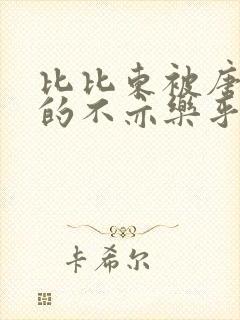 比比东被唐
的不亦乐乎
卡希尔